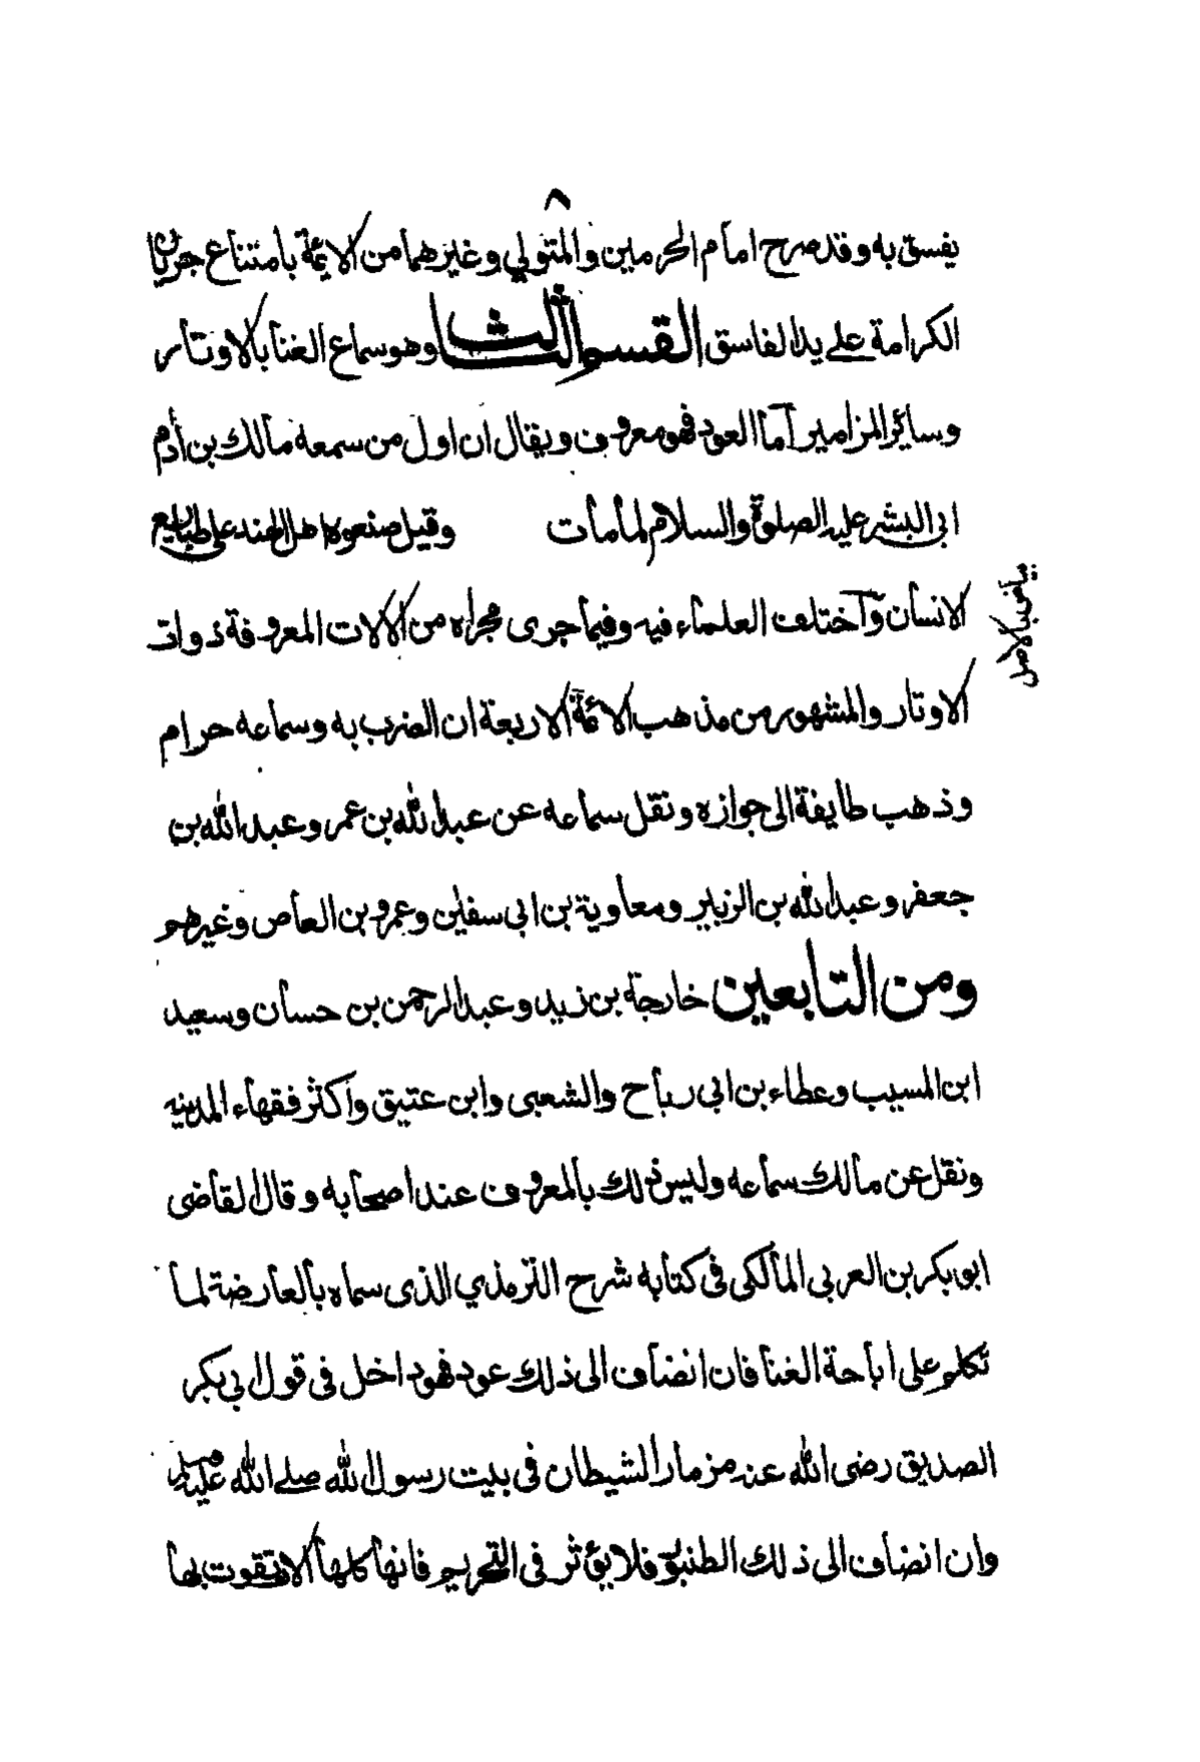 ٨
يفسق به وقد صرح امام الحرمين والمتولي وغيرهما من الايمة بامتناع جريان
الكرامة على يد الفاسق القسم الثالث وهو سماع الغنا بالاوتار
وسائر المزامير اما العود فهو معروف ويقال ان اول من سمعه مالك بن أدم
ابى البشر عليه الصلوة والسلام لما مات وقيل صنعوه اهل الهند على طبايع
بياض بالاصل
الانسان واختلف العلماء فيه وفيما جرى مجراه من الالات المعروفة ذوات
الاوتار والمشهور من مذهب الائمة الاربعة ان الضرب به وسماعه حرام
وذهب طايفة الى جوازه ونقل سماعه عن عبد الله بن عمر وعبد الله بن
جعفر وعبد الله بن الزبير ومعاوية بن ابى سفين وعمرو بن العاص وغيرهم
ومن التابعين خارجة بن زيد وعبد الرحمن بن حسان وسعيد
ابن المسيب وعطاء بن ابى رباح والشعبى وابن عتيق واكثر فقهاء المدينه
ونقل عن مالك سماعه وليس ذلك بالمعروف عند اصحابه وقال القاضى
ابو بكر بن العربى المالكى فى كتابه شرح الترمذي الذى سماه بالعارضة لما
تكلم على اباحة الغنا فان انضاف الى ذلك عود فهو داخل فى قول ابى بكر
الصديق رضى الله عنه مزمار الشيطان فى بيت رسول الله صلى الله عليه وسلم
وان انضاف الى ذلك الطنبور فلا يؤثر فى التحريم فانها كلها الات تقوت بها